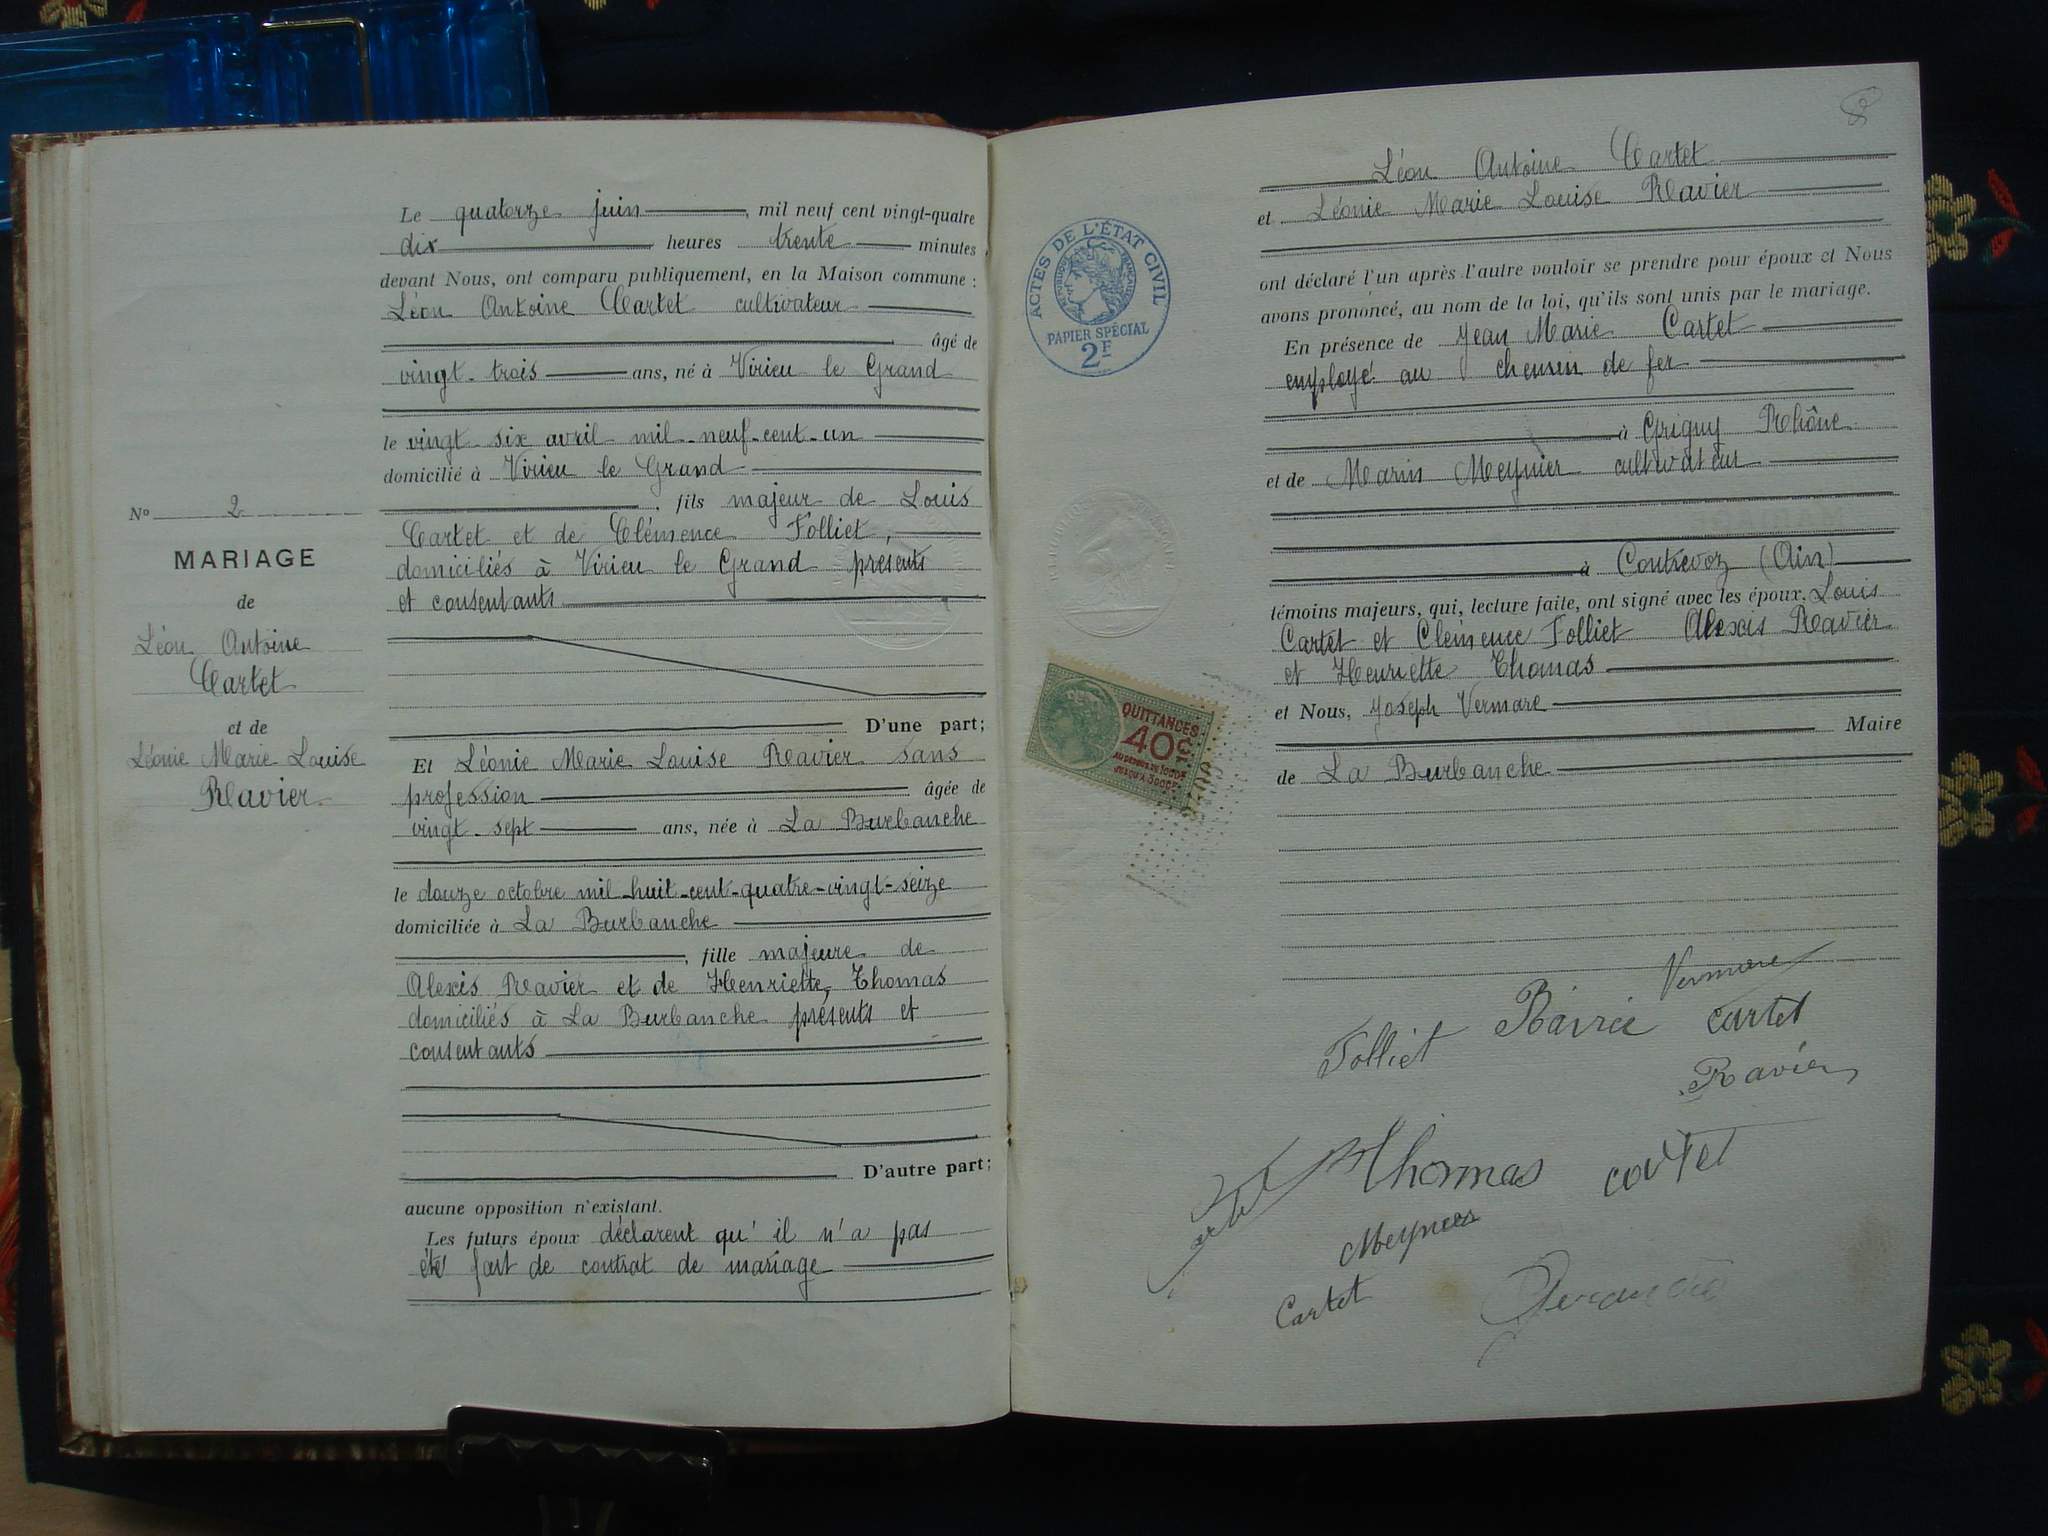 Le quatorze juin, mil neuf cent vingt-quatre
dix heures trente minutes,
devant Nous, ont comparu publiquement, en la Maison commune :
Léon Antoine Cartet cultivateur
âgé de
vingt-trois ans, né à Virieu le Grand
le vingt-six avril mil-neuf-cent-un
domicilié à Virieu le Grand
, fils majeur de Louis
Cartet et de Clémence Folliet,
domiciliés à Virieu le Grand présents
et consentants
D'une part;
Et Léonie Marie Louise Ravier sans
profession âgée de
vingt-sept ans, née à La Burbanche
le douze octobre mil-huit-cent-quatre-vingt-seize
domiciliée à La Burbanche
, fille majeure de
Alexis Ravier et de Henriette, Thomas
domiciliés à La Burbanche présents et
consentants
D'autre part;
aucune opposition n'existant.
Les futurs époux déclarent qu'il n'a pas
été fait de contrat de mariage
No 2
MARIAGE
de
Léon Antoine
Cartet
et de
Léonie Marie Louise
Ravier.
8
Léon Antoine Cartet
et Léonie Marie Louise Ravier
ont déclaré l'un après l'autre vouloir se prendre pour époux et Nous
avons prononcé, au nom de la loi, qu'ils sont unis par le mariage.
En présence de Jean Marie Cartet
employé au chemin de fer
à Grigny Rhône
et de Marin Meynier cultivateur
à Contrevoz (Ain)
témoins majeurs, qui, lecture faite, ont signé avec les époux, Louis
Cartet et Clémence Folliet Alexis Ravier
et Henriette Thomas
et Nous, Joseph Vermare
Maire
de La Burbanche
ACTES DE L'ÉTAT CIVIL
RÉPUBLIQUE FRANÇAISE
PAPIER SPÉCIAL
2F
QUITTANCES
40c
AU DESSUS DE 1000F
JUSQU'A 3000F
Vermare
Folliet cartet
Ravier
Thomas cartet
Meynier
Cartet